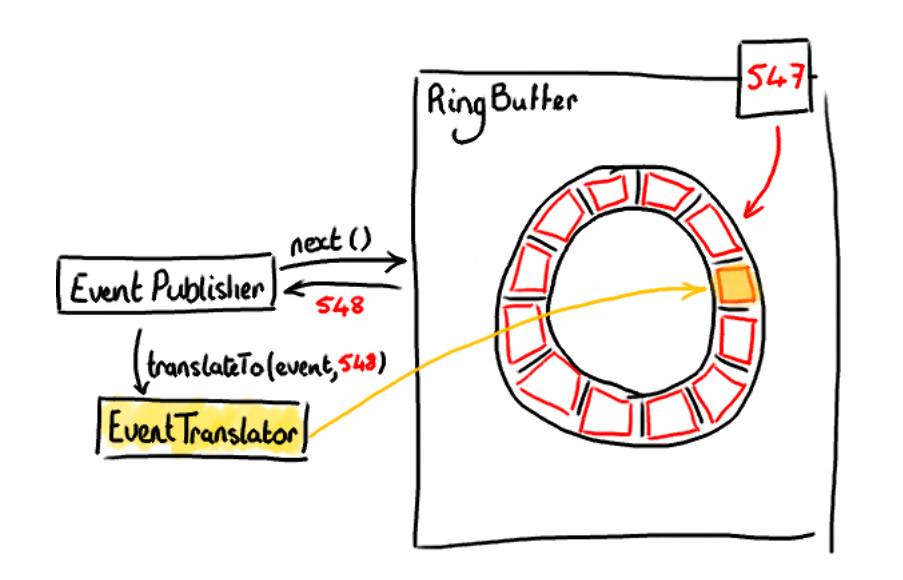 547
RingBuffer
next()
EventPublisher
548
translateTo(event,548)
EventTranslator